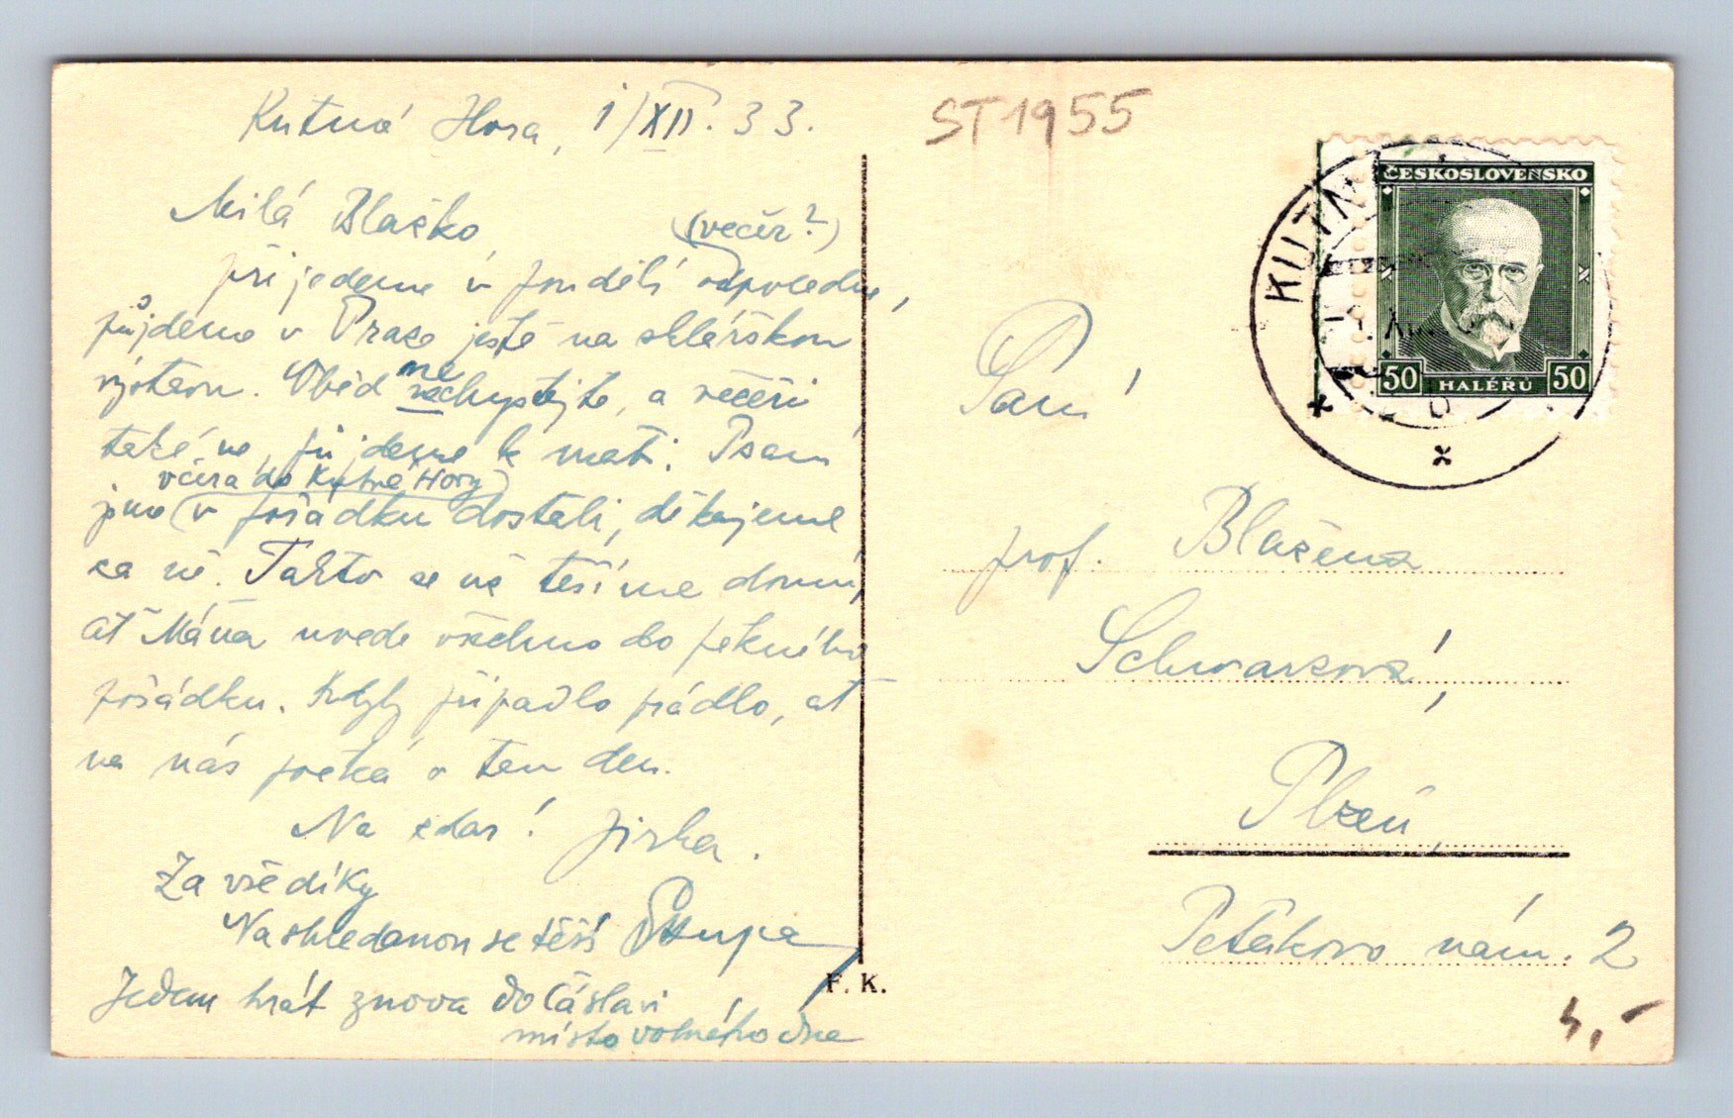 Kutná Hora, 1/XII. 33.
Milá Blažko, (večer?)
přijedeme v pondělí odpoledne,
půjdeme v Praze ještě na sklářskou
výstavu. Oběd nechystejte, a večeři
také ne, půjdeme k mati. Psaní
včera do Kutné Hory
jsme v pořádku dostali, děkujeme
za ně. Takto se už těšíme domů,
ať Máňa uvede všechno do pěkného
pořádku. Kdyby připadlo prádlo, ať
na nás počká o ten den.
Na zdar! Jirka.
Za vše díky
Na shledanou se těší
Jedem hrát znova do Čáslavi
místo volného dne
F. K.
ST1955
KUTN
ČESKOSLOVENSKO
50 HALÉŘŮ 50
Paní
prof. Blažena
Schwarzová,
Plzeň,
Petákovo nám. 2